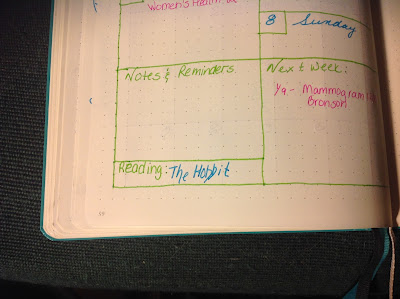 Women's Health
8 Sunday
Notes & Reminders
Next Week:
1/9 - Mammogram
Bronson
Reading: The Hobbit